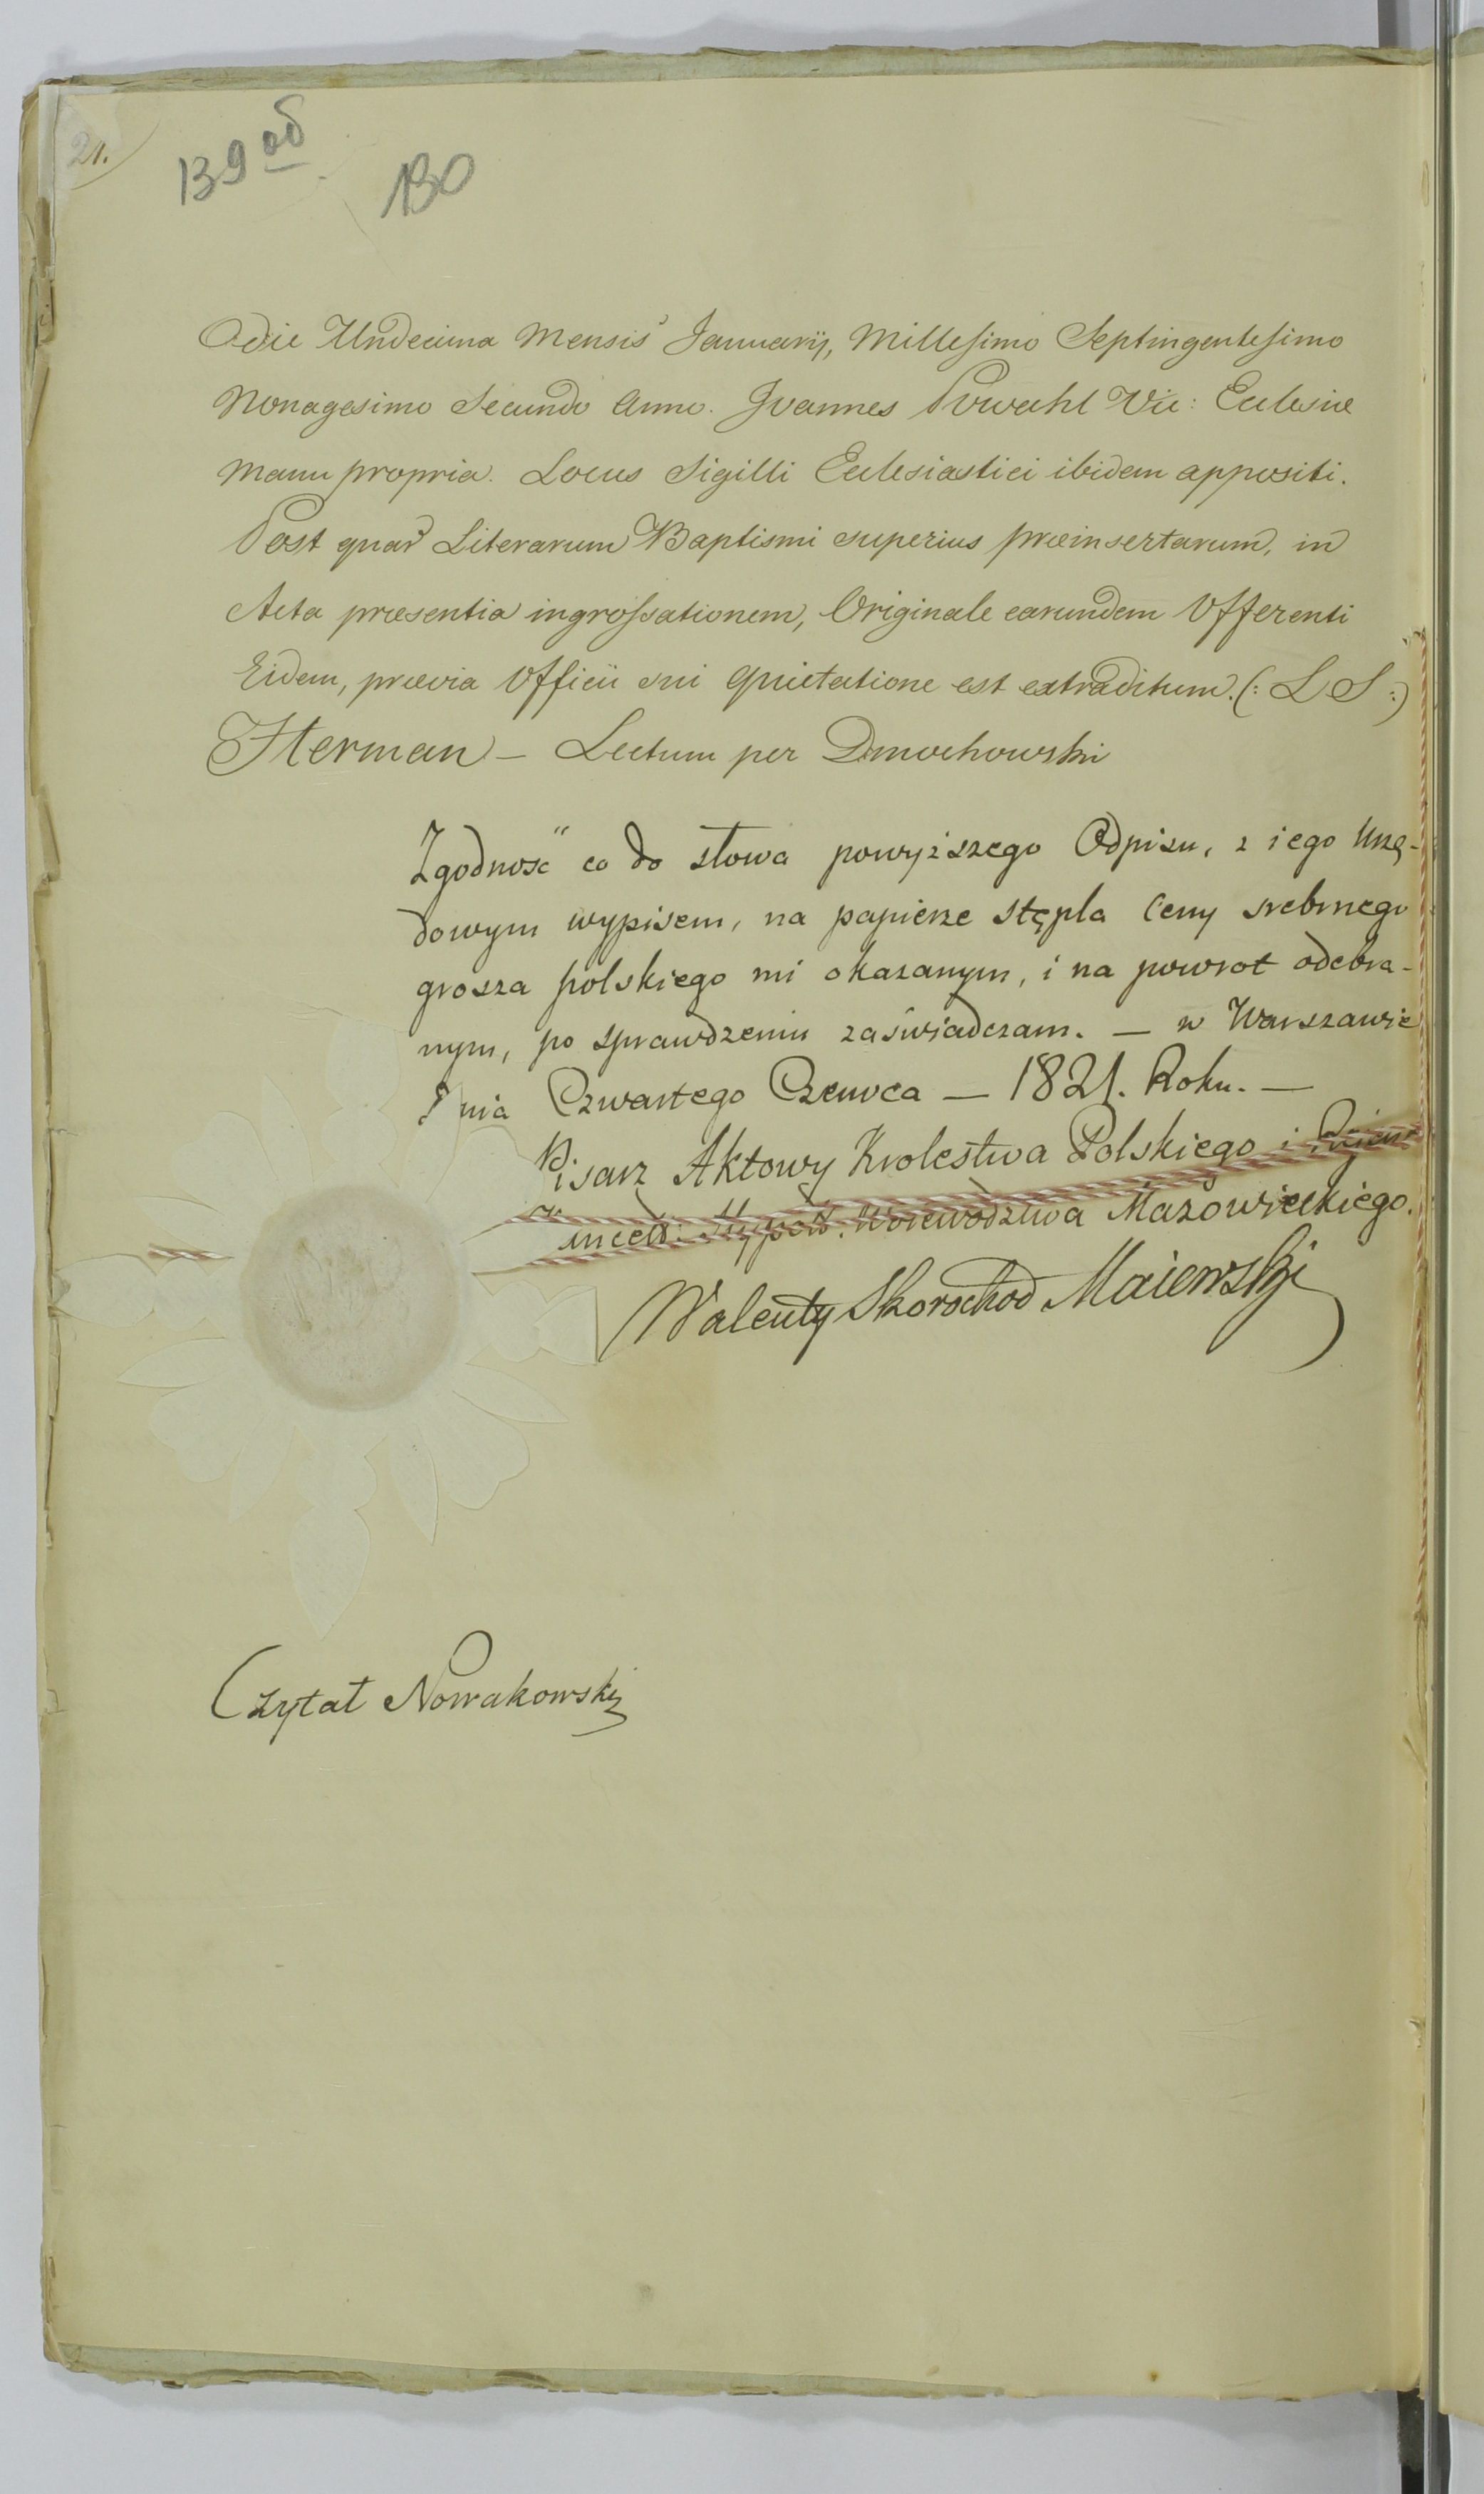 21.
139 об
130
Odie Undecima Mensis Januarij, Millesimo Septingentesimo
Nonagesimo Secundo Anno. Joannes Powachl Vic: Ecclesiæ
manu propria. Locus Sigilli Ecclesiastici ibidem appositi.
Post quar Literarum Baptismi superius præinsertarum, in
Acta præsentia ingrossationem, Originale earundem Offerenti
Eidem, prævia Officii sui quietatione est extraditum. (: L S :)
Herman – Lectum per Dmochowski
Zgodność co do słowa powyższego Odpisu, z iego Urzę-
dowym wypisem, na papierze stępla Ceny srebrnego
grosza polskiego mi okazanym, i na powrot odebra-
nym, po sprawdzeniu zaświadczam. — w Warszawie
Dnia Czwartego Czerwca — 1821. Roku. —
Pisarz Aktowy Krolestwa Polskiego i
Woiewodztwa Mazowieckiego.
Walenty Skorochod Maiewski
Czytał Nowakowski